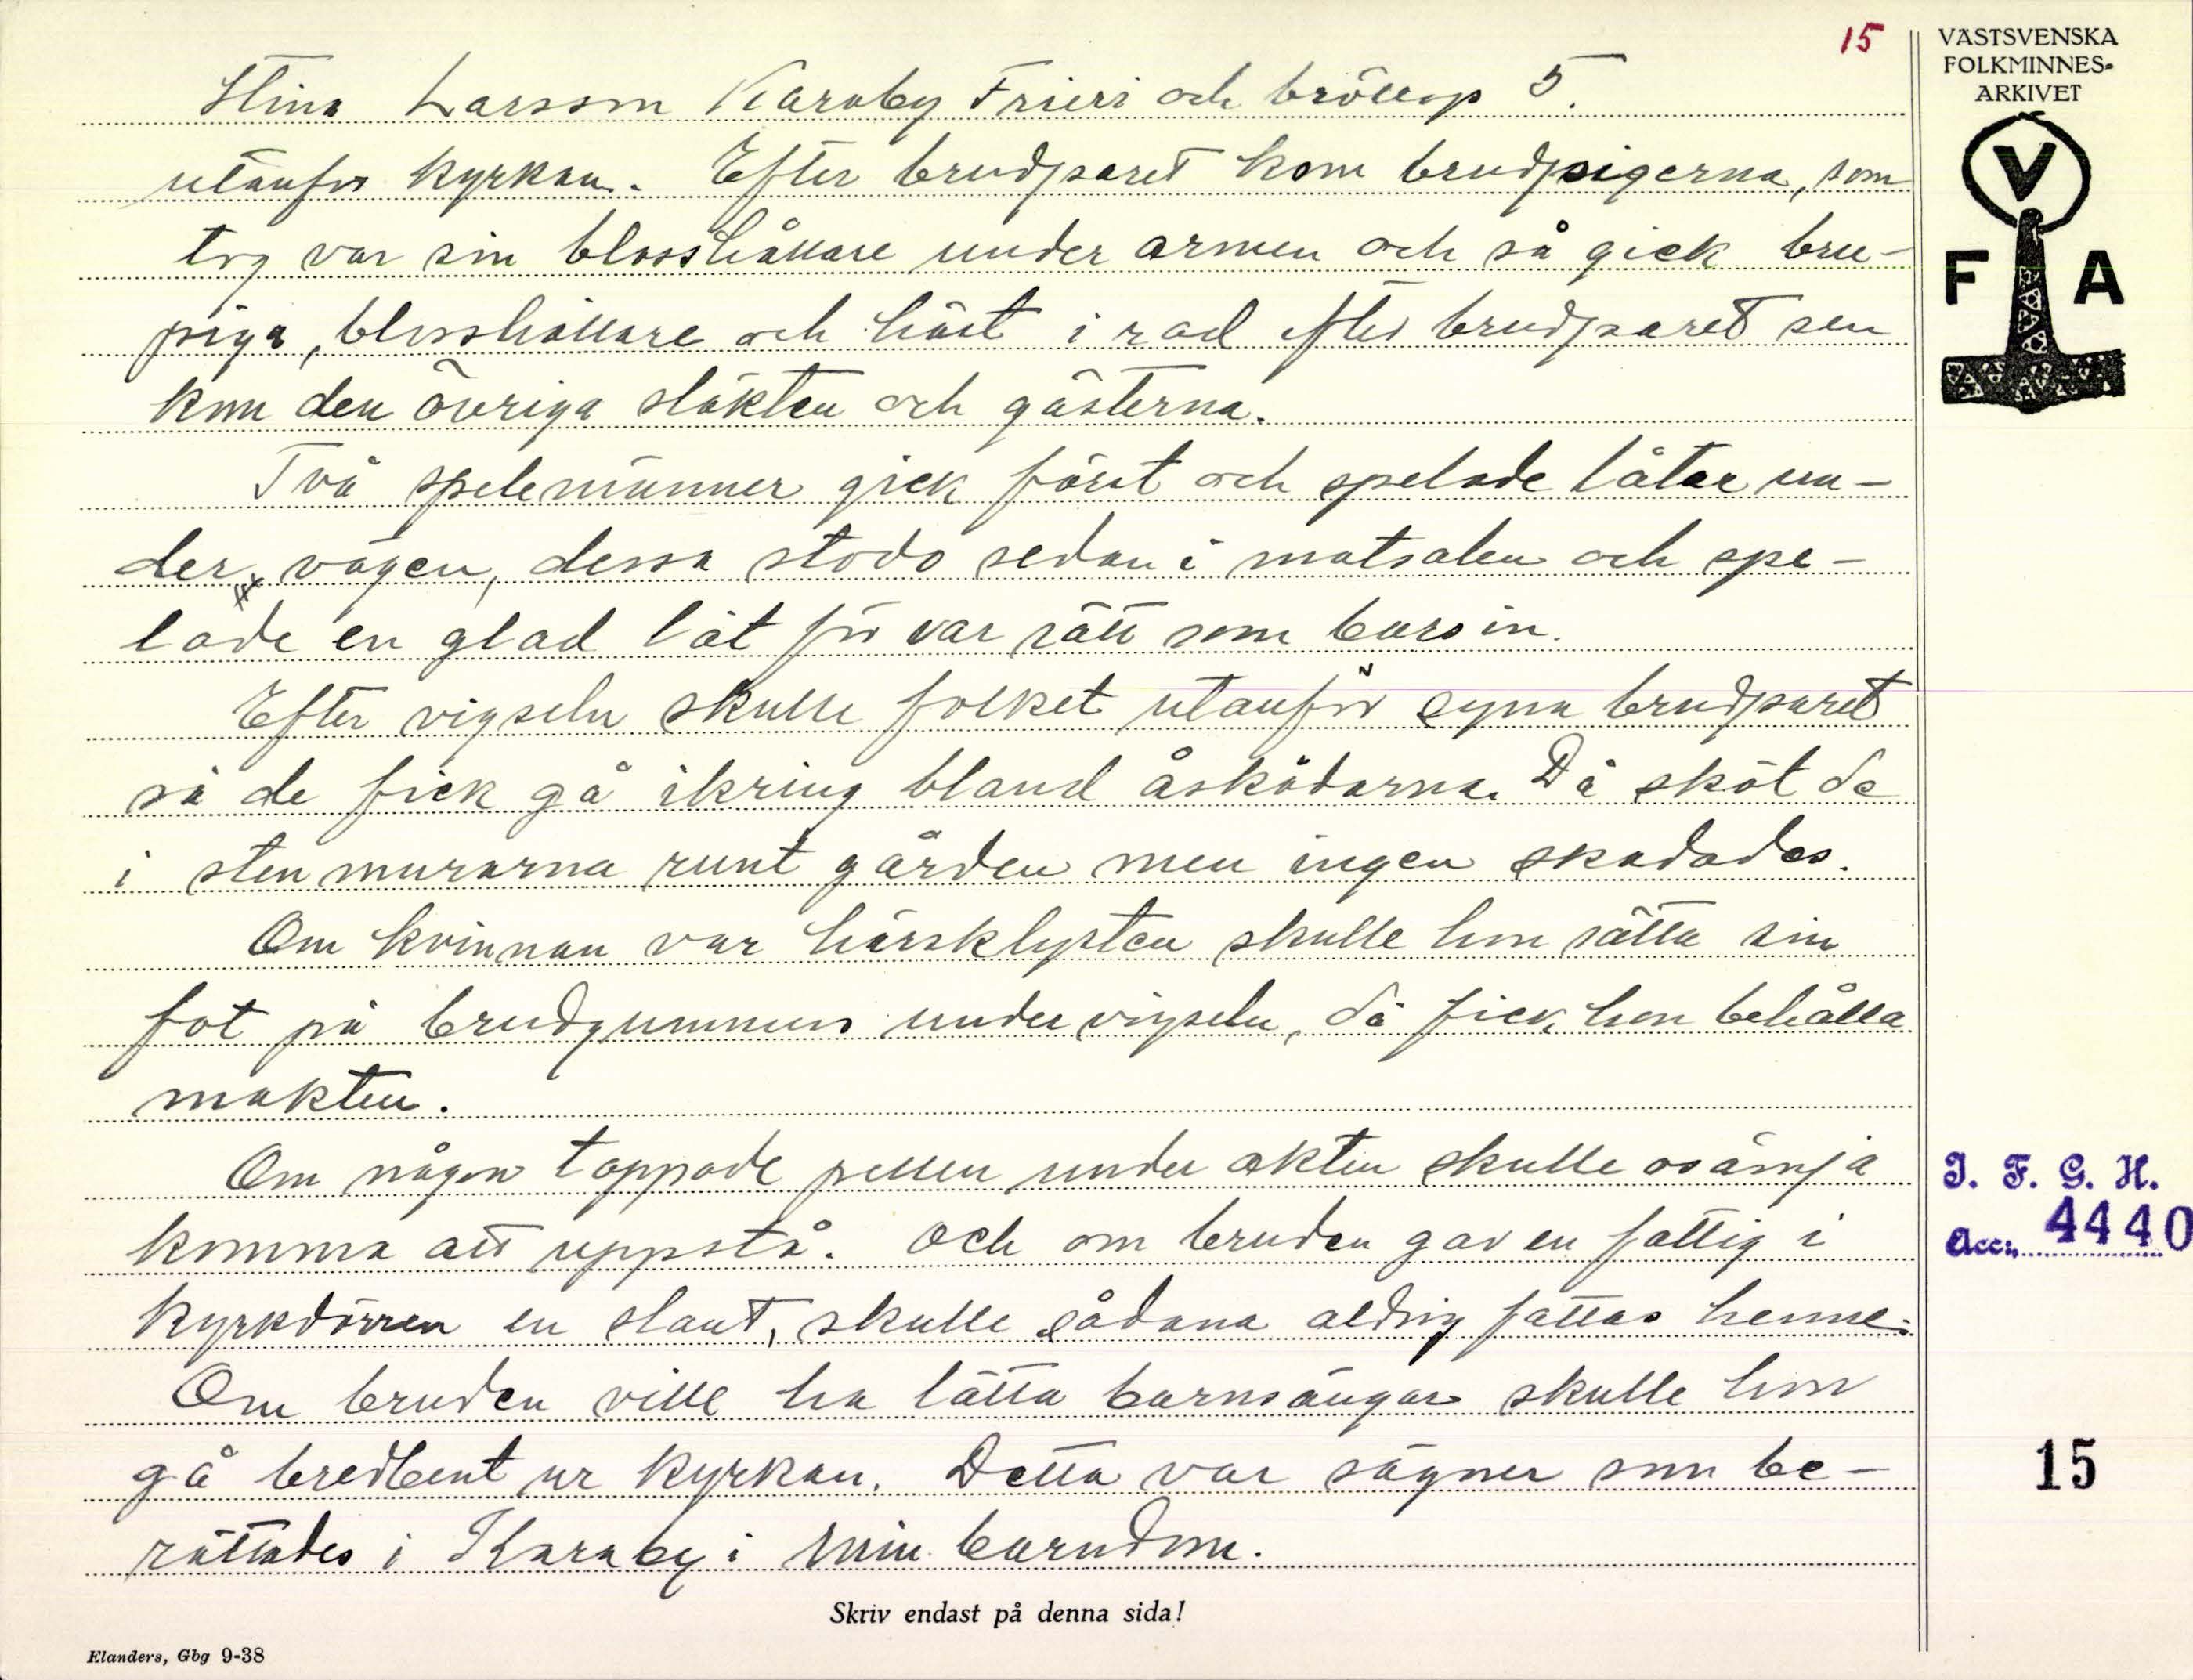 15
VÄSTSVENSKA
FOLKMINNES-
ARKIVET
V
F A
Stina Larsson Karaby Frieri och bröllop 5.
utanför kyrkan. Efter brudparet kom brudpigerna, som
tog var sin blosshållare under armen och så gick bru-
piga, blosshållare och häst i rad efter brudparet sen
kom den övriga släkten och gästerna.
Två spelemänner gick först och spelade låtar un-
der vägen, dessa stodo sedan i matsalen och spe-
lade en glad låt för var rätt som bars in.
Efter vigseln skulle folket utanför syna brudparet
så de fick gå ikring bland åskådarna. Då sköt de
i stenmurarna runt gården men ingen skadades.
Om kvinnan var härsklysten skulle hon sätta sin
fot på brudgummens under vigseln, då fick hon behålla
makten.
Om någon tappade pellen under akten skulle osämja
komma att uppstå. Och om bruden gav en fattig i
kyrkdörren en slant, skulle sådana aldrig fattas henne.
Om bruden ville ha lätta barnsängar skulle hon
gå bredbent ur kyrkan. Detta var sägner som be-
rättades i Karaby i min barndom.
I. F. G. H.
Acc. 4440
15
Skriv endast på denna sida!
Elanders, Gbg 9-38